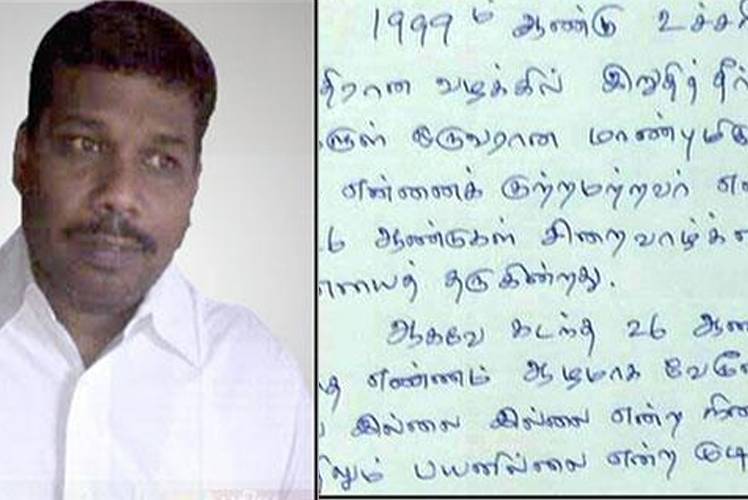 1999ம் ஆண்டு உச்சநீ
திரான வழக்கில் இறுதித் தீர்
ளுள் ஒருவரான மாண்புமிகு
என்னைக் குற்றமற்றவர் என
6 ஆண்டுகள் சிறைவாழ்க்கை
னையைத் தருகின்றது.
ஆகவே கடந்த 26 ஆண
எண்ணம் ஆழமாக வேரூ
இல்லை இல்லை என்ற நிலை
லும் பயனில்லை என்ற முடி